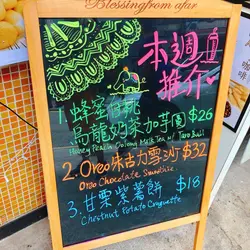 Blessing from afar
本週
推介
1. 蜂蜜桃
烏龍奶茶加芋圓 $26
Honey Peach Oolong Milk Tea w/ Taro Ball
2. Oreo朱古力雪沙 $32
Oreo Chocolate Smoothie
3. 甘栗紫薯餅 $18
Chestnut Potato Croquette
咖啡